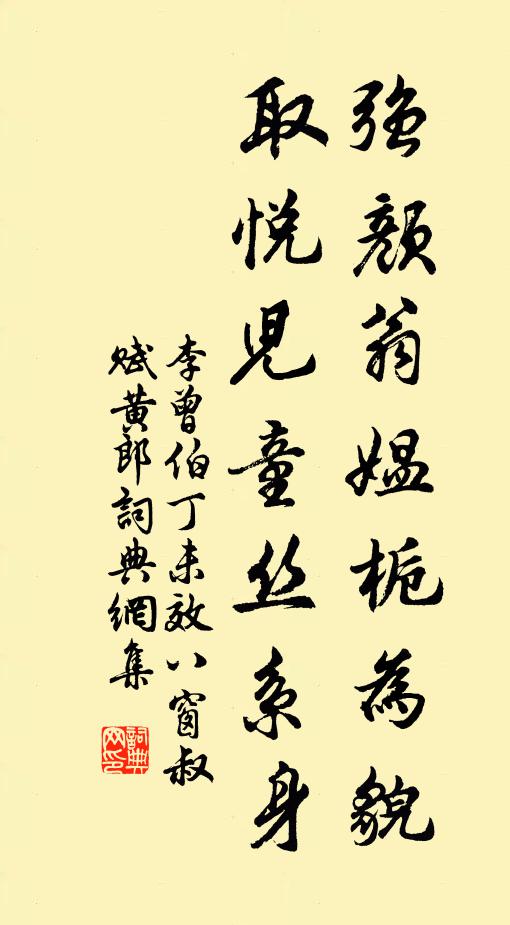 强颜翁媪栀為貌
取悦児童丝系身
李曾伯丁未效八窗叔
赋黄郎詞典網集
詞典
网印